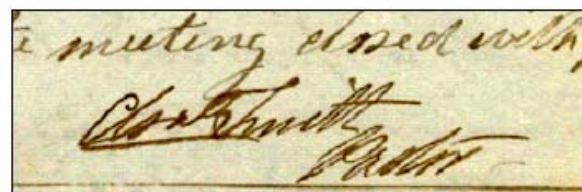 meeting closed with
Smith
Pastor